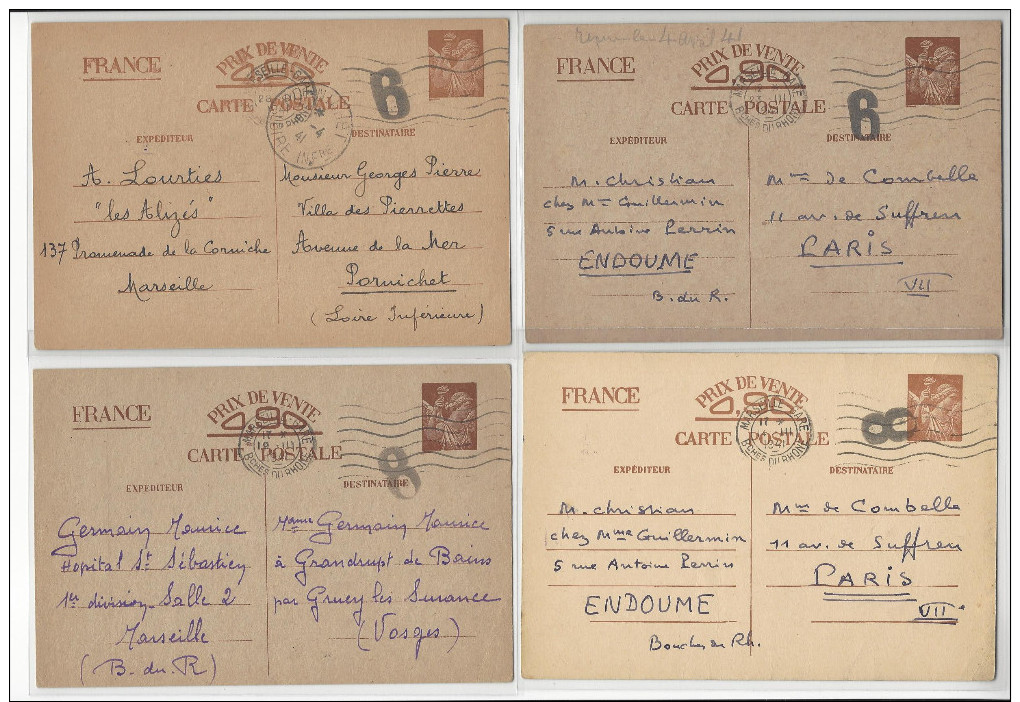 FRANCE
PRIX DE VENTE
0,90
CARTE POSTALE
6
EXPÉDITEUR
DESTINATAIRE
A. Lourties
"les Alizés"
137 Promenade de la Corniche
Marseille
Monsieur Georges Pierre
Villa des Pierrettes
Avenue de la Mer
Pornichet
(Loire Inférieure)
4 Avril 41
FRANCE
PRIX DE VENTE
0,90
CARTE POSTALE
MARSEILLE GARE
BCHES DU RHONE
6
EXPÉDITEUR
DESTINATAIRE
M. Christian
chez Mme Guillermin
5 rue Antoine Perrin
ENDOUME
B. du R.
Mme de Combelle
11 av. de Suffren
PARIS
VII
FRANCE
PRIX DE VENTE
0,90
CARTE POSTALE
MARSEILLE GARE
BCHES DU RHONE
8
EXPÉDITEUR
DESTINATAIRE
Germain Maurice
Hopital St Sébastien
1re division Salle 2
Marseille
(B. du R)
Mame Germain Maurice
à Grandrupt de Bains
par Gruey les Surance
(Vosges)
FRANCE
PRIX DE VENTE
0,90
CARTE POSTALE
MARSEILLE GARE
BCHES DU RHONE
8
EXPÉDITEUR
DESTINATAIRE
M. Christian
chez Mme Guillermin
5 rue Antoine Perrin
ENDOUME
Bouches du Rh.
Mme de Combelle
11 av. de Suffren
PARIS
VII